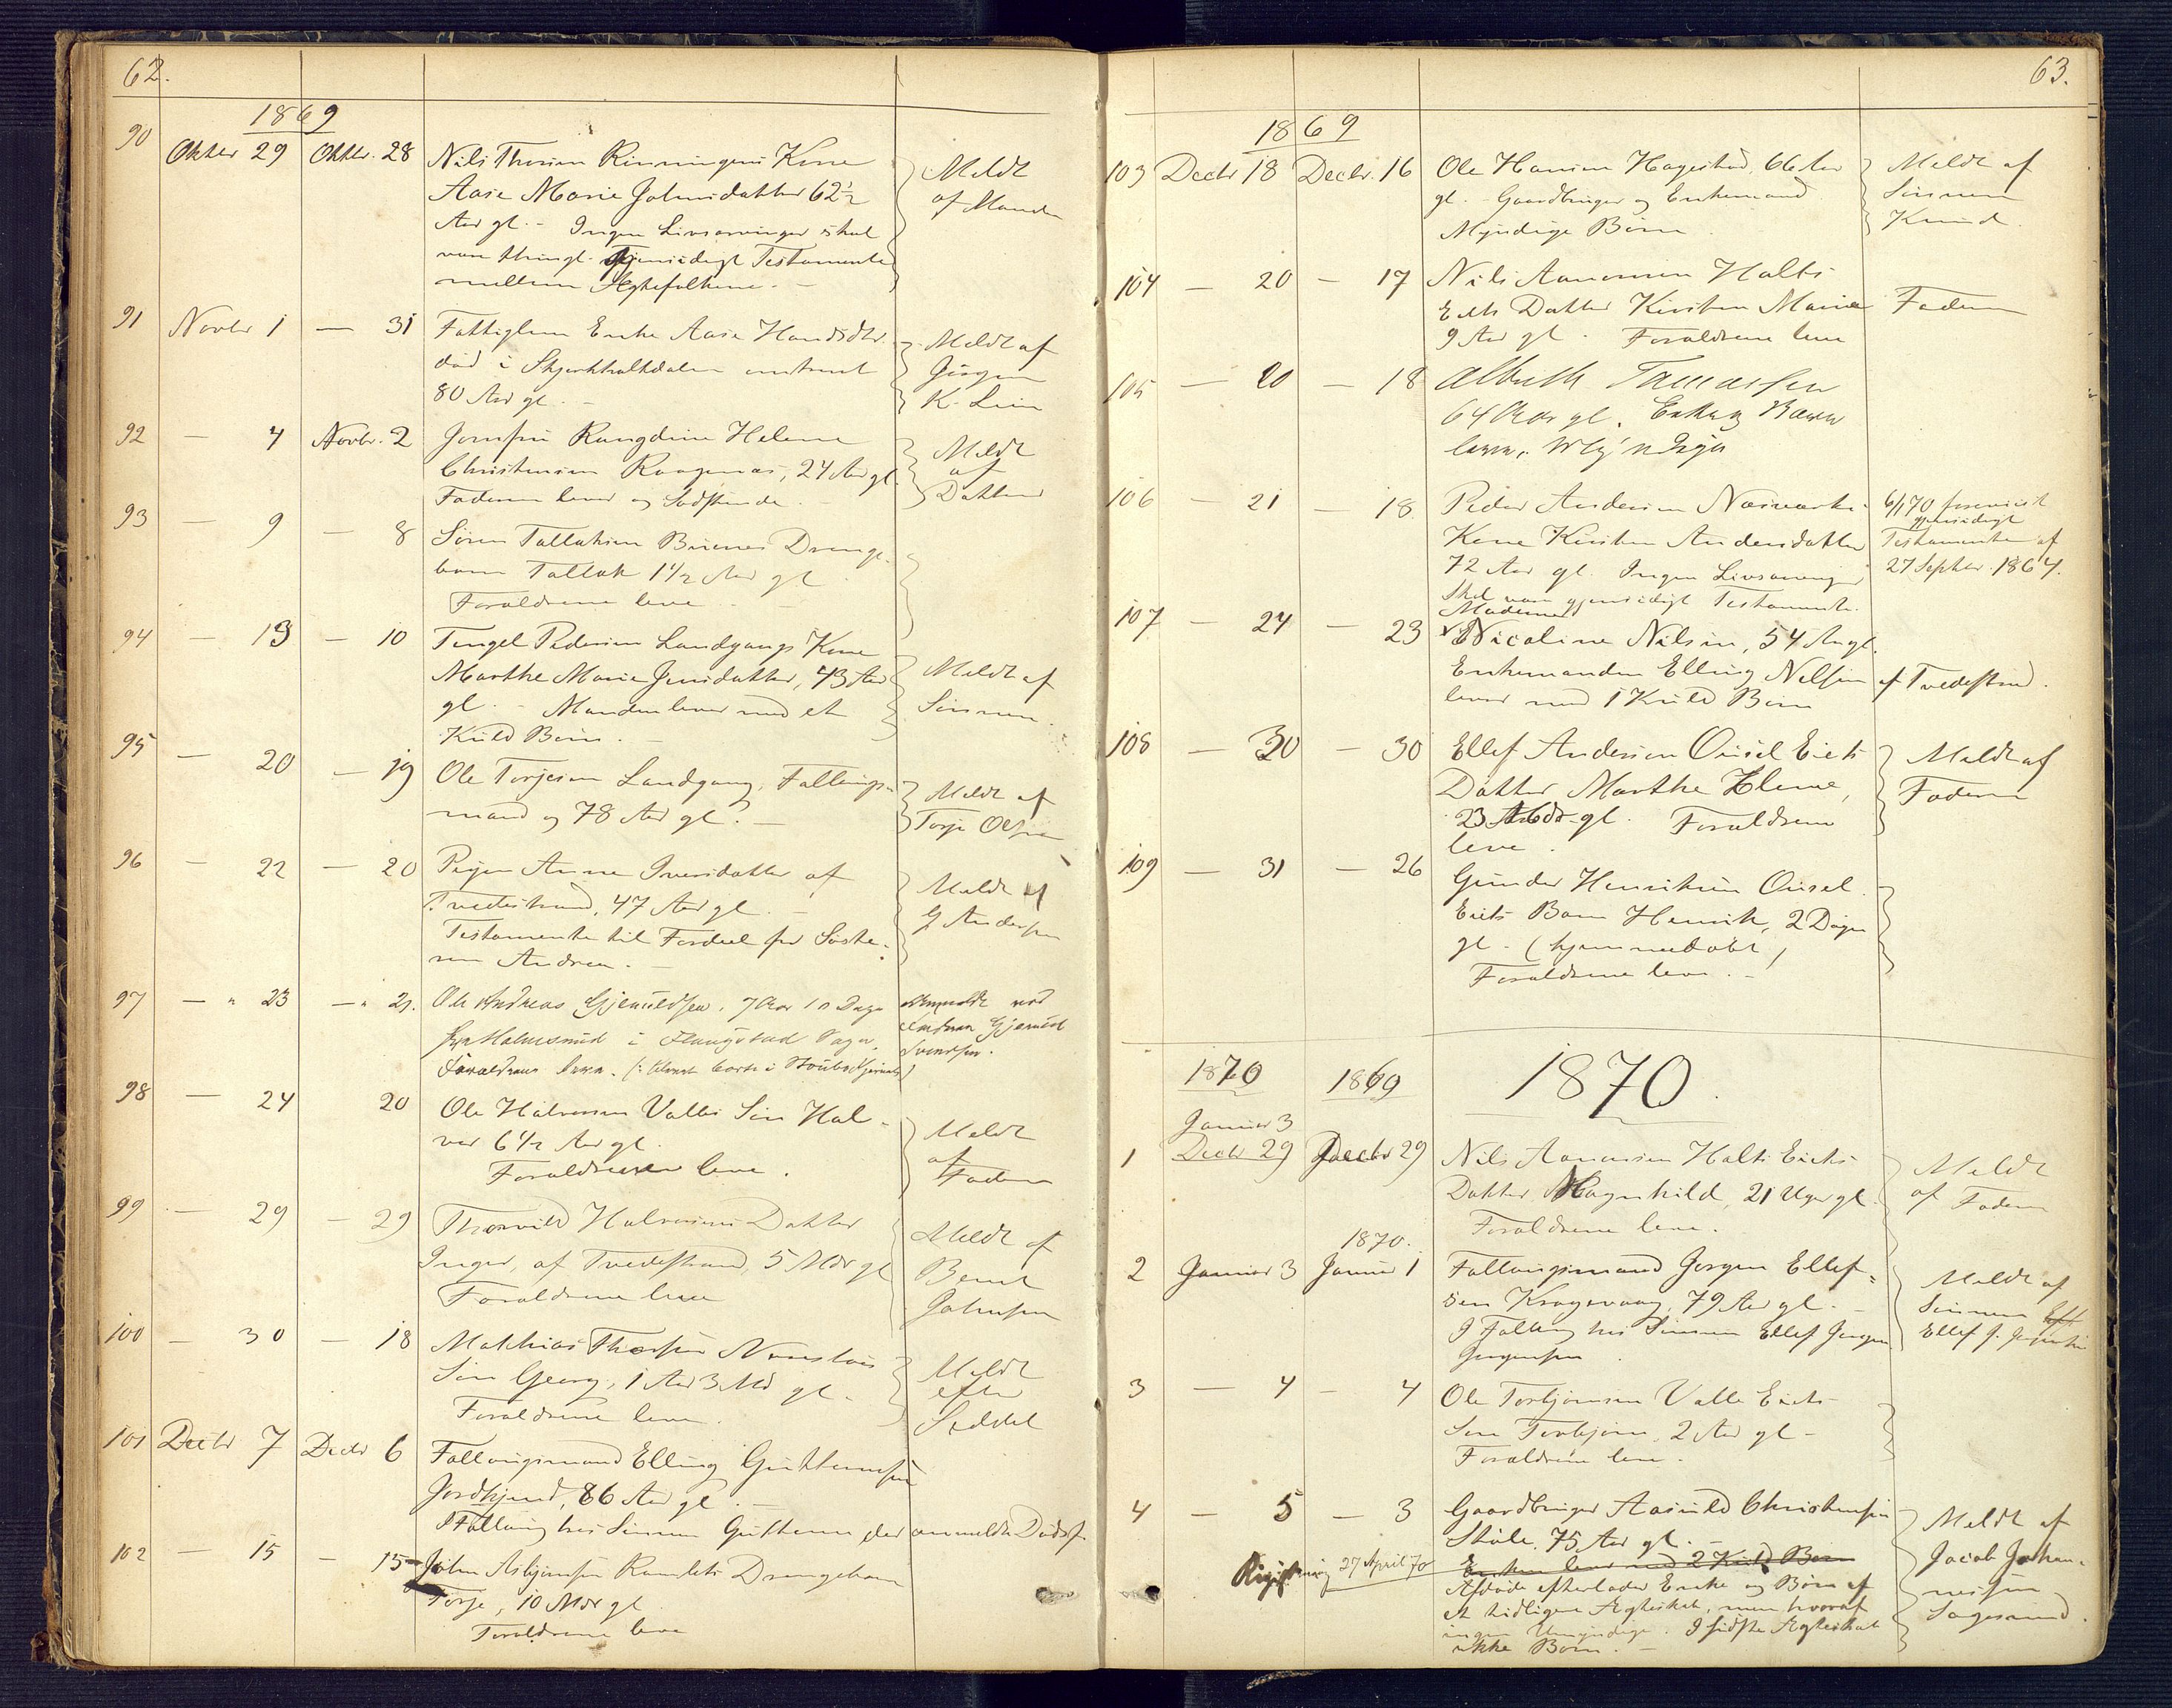 62.
1869
90 Oktbr 29 Oktbr. 28 Nils Thorsen Rinningens Kone Meldt
Aase Marie Johnsdatter 62½ af Manden
Aar gl. - Ingen Livsarvinger skal
være thingl. gjensidigt Testamente
mellem Ægtefolkene. -
91 Novbr 1 — 31 Fattiglem Enke Aase Hansdtr. Meldt af
død i omtrent Jørgen
80 Aar gl. - K. Lien
92 — 4 Novbr. 2 Jomfru Helene Meldt
Christensen 24 Aar gl. af
Faderen lever og Sødskende. Dahl
93 — 9 — 8 Søren Tallaksen Drenge-
barn Tallak 1½ Aar gl.
Forældrene leve -
94 — 13 — 10 Tengel Pedersen Landgangs Kone
Marthe Marie Jensdatter, 43 Aar Meldt af
gl. - Manden lever med et Sønnen.
Kuld Børn. -
95 — 20 — 19 Ole Torjesen Landgang, Føllougs-
mand og 78 Aar gl. - Meldt af Torje Olsen
96 — 22 — 20 Pigen Anne Iversdatter af Meldt af
Tvedestrand, 47 Aar gl. - G Andersen
Testamente til Fordeel for Søste-
ren Andrea. -
97 — " 23 — " 21. Ole Andreas Gjeruldsen, 7 Aar 10 Dage Anmeldt ved
fra i Sogn. Faderen Gjeruld
Forældrene leve. Svendsen.
98 — 24 20 Ole Halvorsen Valle Søn Hal-
vor 6½ Aar gl. Meldt af
Forældrene leve. Faderen
99 — 29 — 29 Thorvild Halvorsens Datter Meldt af
Inger, af Tvedestrand, 5 Mdr gl Bernt
Forældrene leve Johnsen
100 — 30 — 18 Mathias Thorsen Meldt
Søn Georg, 1 Aar 3 Md gl. efter
Forældrene leve. Seddel
101 Decbr 7 Decbr 6 Føllougsmand Elling Guttormsen
86 Aar gl. -
I Følloug hos Sønnen Guttorm, der anmeldte Dødsf.
102 — 15 — 15 John Asbjørnsen Ramlets Drengebarn
Torje, 10 Mdr gl
Forældrene leve
63.
1869
103 Decbr 18 Decbr. 16 Ole Hansen Hagestad, 66 Aar Meldt af
gl. - Gaardbruger og Enkemand Sønnen
Myndige Børn. Knud.
104 — 20 — 17 Nils Aanonsen Holts
Ægte Datter Kirsten Marie Faderen
9 Aar gl. Forældrene leve
105 — 20 — 18
64 Aar gl. Enke og Børn
leve, Myndige
106 — 21 — 18 Peder Andersen Næsværks 6/1 70 forevist
Kone Kirsten Andersdatter gjensidigt Testamente af
72 Aar gl. Ingen Livsarvinger 27 Septbr. 1864.
Skal være gjensidigt Testamente.
107 — 24 — 23 Madame Nicoline Nilsen, 54 Aar gl.
Enkemanden Elling Nilsen af Tvedestrand.
lever med 1 Kuld Børn
108 — 30 — 30 Ellef Andersen Ousel Ægte Meldt af
Datter Marthe Helene, Faderen
23 gl. Forældrene
leve.
109 — 31 — 26 Gunder Henriksen Ousel
Ægte Barn Henrik, 2 Dage
gl. - (hjemmedøbt)
Forældrene leve. -
1870 1869 1870.
Januar 3
1 Decbr 29 Decbr 29 Nils Aanonsen Holts Ægte Meldt
Datter Magnhild, 21 Uger gl. af Faderen
Forældrene leve.
1870.
2 Januar 3 Januar 1 Føllougsmand Jørgen Ellef- Meldt af
sen Kragsvaag, 79 Aar gl. - Sønnen
I Følloug hos Sønnen Ellef Jørgen Ellef J. Jørgensen
Jørgensen
3 — 4 — 4 Ole Torbjørnsen Valle Ægte
Søn Torbjørn, 2 Aar gl -
Forældrene leve.
4 — 5 — 3 Gaardbruger Aasuld Christensen Meldt af
75 Aar gl. - Jacob Johan-
Registrering 27 April 70 Enken lever med 2 Kuld Børn nessen
Afdøde efterlader Enke og Børn af Sagesund.
et tidligere Ægteskab, men hvoraf
ingen Umyndige. I sidste Ægteskab
ikke Børn. -